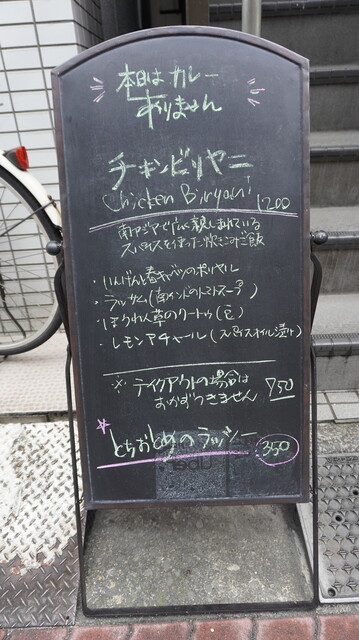 本日は カレー
ありません
チキンビリヤニ
Chicken Biryani 1200
南アジアで広く親しまれている
スパイスを使った炊きこみご飯
・いんげんと春キャベツのポリヤル
・ラッサム(南インドのトマトスープ)
・ほうれん草のパートゥ(豆)
・レモンアチャール(スパイスオイル漬け)
※ テイクアウトの場合は
おかずつきません 750
とちおとめのラッシー 350